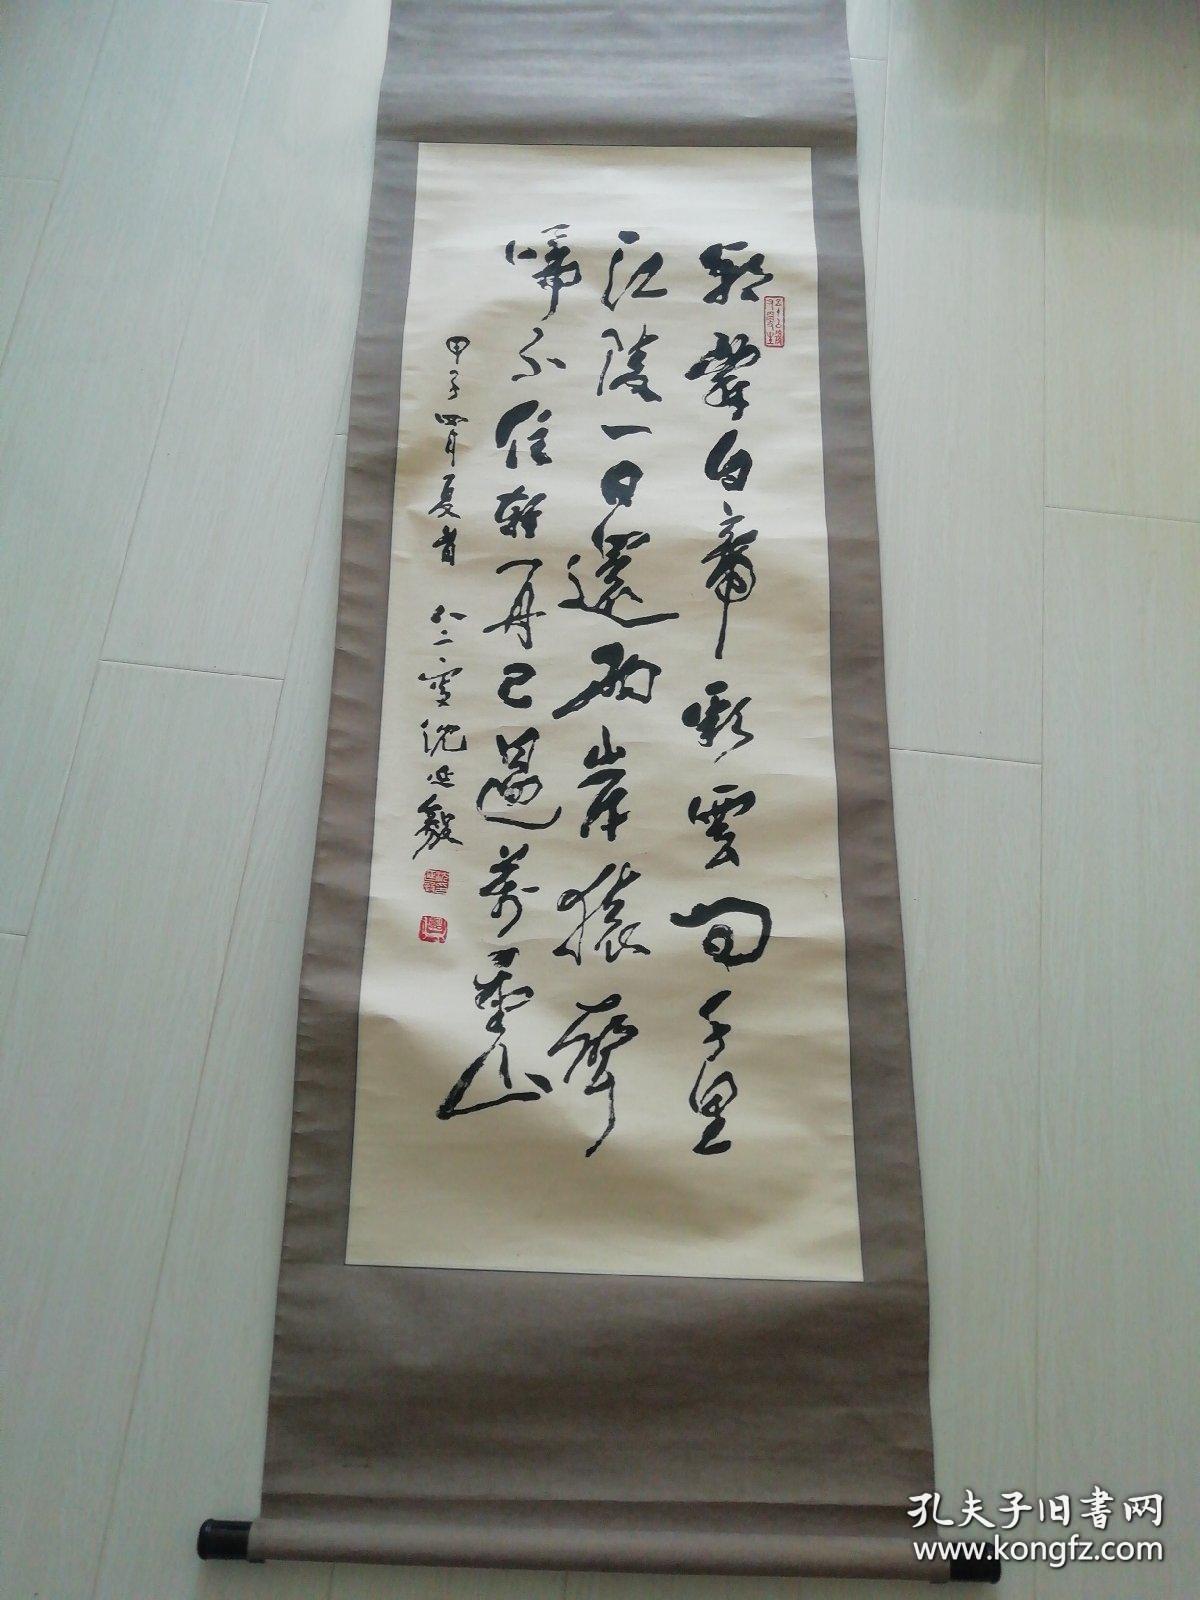 朝辭白帝彩雲間千里
江陵一日還兩岸猿聲
啼不住輕舟已過萬重山
甲子四月夏首 八二叟沈延毅
孔夫子旧书网
www.kongfz.com